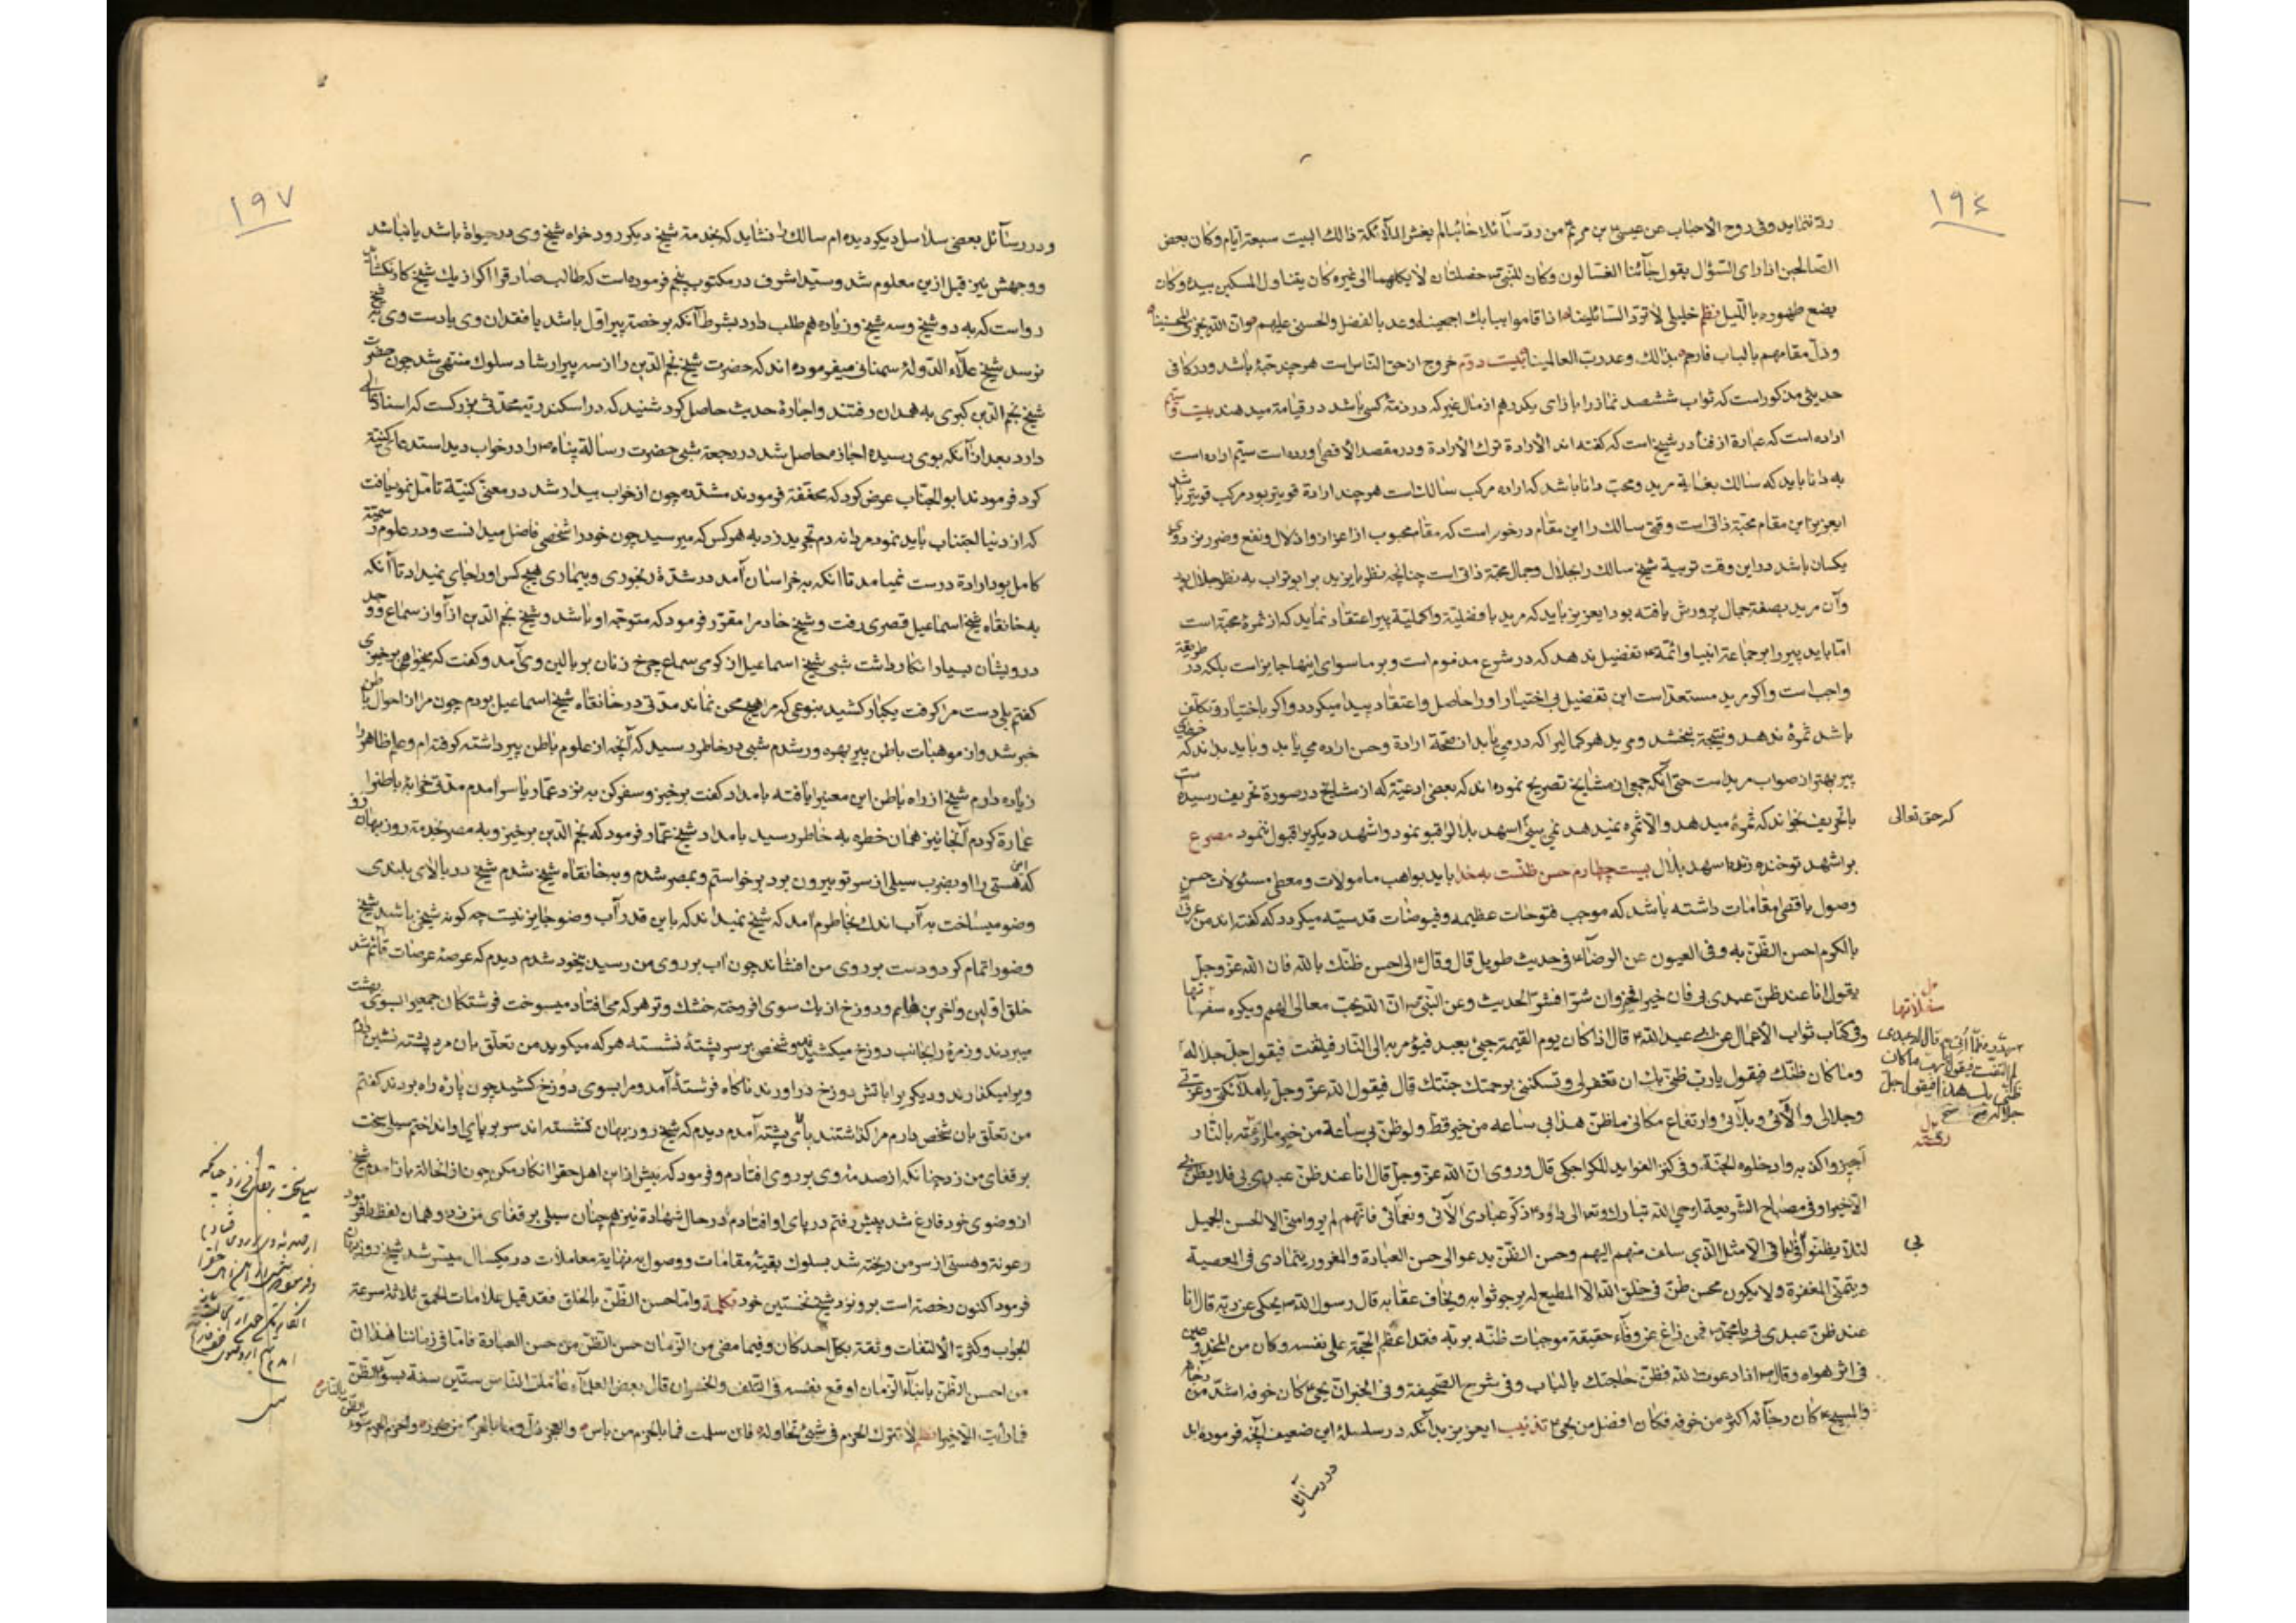 ١٩٤
رد ننماید وفی روح الاحباب عن عیسی بن مریم من ردّ سآئلا خائبا لم یغش الملآئکة ذالك البیت سبعة ایّام وکان بعض
الصّالحین اذا رای السّؤال یقول جآئنا الغسّالون وکان للنبی خصلتان لا یکلهما الی غیره کان یناول المسکین بیده وکان
یضع طهوره باللّیل نظم خلیلی لا تردّ السّائلینا اذا قاموا ببابك اجمعینا وعد بالفضل والحسنی علیهم وان الله یجزی المحسنینا
وذلّ مقامهم بالباب فارحم بذالك وعد ربّ العالمینا بیست دوّم خروج از حق النّاس است هر چند حبّهٔ باشد ودر کافی
حدیثی مذکور است که ثواب ششصد نماز را بازای یکدرهم از مال غیر که در ذمّهٔ کسی باشد در قیامة میدهند بیست و سیّم
اراده است که عبارة از فنآ در شیخ است که گفته اند الأرادة ترك الأرادة ودر مقصد الأقصی آورده است سیّم اراده است
به دانا باید که سالك بغایة مرید ومحبّ دانا باشد که اراده مرکب سالك است هر چند ارادة قویتر بود مرکب قویتر باشد
ایعزیز این مقام محبّة ذاتی است وقتی سالك را این مقام در خور است که مقام محبوب از اعزاز واذلال ونفع وضرر نزد وی
یکسان باشد در این وقت تربیة شیخ سالك را بجلال وجمال محبّة ذاتی است چنانچه نظر بایزید بر ابو تراب به نظر جلال بود
وآن مرید بصفة جمال پرورش یافته بود ایعزیز باید که مرید بافضلیّة واکملیّة پیر اعتقاد نماید که از ثمرهٔ محبّة است
امّا باید پیر را بر جماعة انبیا وائمّة تفضیل ندهد که در شرع مذموم است وبر ما سوای اینها جایز است بلکه در طریقة
واجب است واکر مرید مستعدّ است این تفضیل بی اختیار او را حاصل واعتقاد پیدا میکردد واکر باختیار وتکلّف
باشد ثمرهٔ ندهد ونتیجة نبخشد ومرید هر کمالیرا که در می یابد از صحّة ارادة وحسن اراده می یابد وباید بداند که خطای
پیر بهتر از صواب مرید است حتی آنکه جمعی از مشایخ تصریح نموده اند که بعضی ادعیّة که از مشایخ در صورة تحریف رسیده است
باتحریف بخواند که ثمرهٔ میدهد والا ثمره نمیدهد نمی بینی اسهد بلال را قبول نمود واشهد دیکر را قبول ننمود مصرع
کرحق تعالی
بر اشهد تو خنده زند اسهد بلال بیست چهارم حسن ظنّست به خدا باید بواهب مامولات ومعطی مسئولات حسن
وصول باقصی مقامات داشته باشد که موجب فتوحات عظیمه وفیوضات قدسیّه میکردد که گفته اند من عرفنی
بالکرم احسن الظنّ به وفی العیون عن الرضا فی حدیث طویل قال وقال لی احسن ظنّك بالله فان الله عزّ وجلّ
یقول انا عند ظنّ عبدی بی فان خیرا فخیر وان شرّا فشرّ الحدیث وعن النبی انّ الله یحبّ معالی الهمم ویکره سفسافها
سفلاتها
وفی کتاب ثواب الأعمال عن ابی عبد الله قال اذا کان یوم القیمة جیئ بعبد فیؤمر به الی النّار فیلتفت فیقول جلّ جلاله
وما کان ظنّك فیقول یا ربّ ظنّی بك ان تغفر لی وتسکننی برحمتك جنّتك قال فیقول الله عزّ وجلّ یا ملآئکتی وعزّتی
وجلالی والآئی وبلآئی وارتفاع مکانی ما ظنّ هذا بی ساعه من خیر قطّ ولو ظنّ بی ساعة من خیر ما روّعته بالنّار
اجیزوا کذبه وادخلوه الجنّة وفی کنز الفواید للکراجکی قال وروی انّ الله عزّ وجلّ قال انا عند ظنّ عبدی بی فلا یظنّ بی
الّا خیرا وفی مصباح الشّریعة اوحی الله تبارك وتعالی الی داود ذکّر عبادی الآئی ونعمآئی فانّهم لم یروا منّی الا الحسن الجمیل
لئلّا یظنّوا فی الباقی الّا مثل الذی سلف منّی الیهم وحسن الظنّ یدعو الی حسن العبادة والمغرور یتمادی فی المعصیة
بی
ویتمنّی المغفرة ولا یکون محسن ظنّ فی خلق الله الا المطیع له یرجو ثوابه ویخاف عقابه قال رسول الله یحکی عن ربّه قال انا
عند ظنّ عبدی بی یا محمّد فمن زاغ عن وفآء حقیقة موجبات ظنّه بربّه فقد اعظم الحجّة علی نفسه وکان من المخدوعین
فی اثر هواه وقال اذا دعوت الله فظنّ حاجتك بالباب وفی شرح الصّحیفة وفی الخبر ان یحیی کان خوفه اشدّ من رجآئه
والمسیح کان رجآئه اکثر من خوفه فکان افضل من یحیی تذنیب ایعزیز بدانکه در سلسلهٔ این ضعیف آنچه فرموده اند
در رسائل
١٩٧
ودر رسآئل بعضی سلاسل دیکر دیده ام سالك را نشاید که بخدمة شیخ دیکر رود خواه شیخ وی در حیوة باشد یا نباشد
ووجهش نیز قبل ازین معلوم شد وسیّد اشرف در مکتوب پنجم فرموده است که طالب صادق را اکر از یك شیخ کار نکشاید
رواست که به دو شیخ وسه شیخ وزیاده هم طلب دارد بشرط آنکه برخصة پیر اوّل باشد یا فقدان وی یا دست وی
نرسد شیخ علآء الدّولهٔ سمنانی میفرموده اند که حضرت شیخ نجم الدّین را از سه پیر ارشاد سلوك منتهی شد چون حضرت
شیخ نجم الدّین کبری به همدان رفتند واجازهٔ حدیث حاصل کرد شنید که در اسکندریّه محدّثی بزرکست که اسناد عالی
دارد بعد از آنکه بوی رسیده اجازه حاصل شد در رجعة شبی حضرت رسالة پناه را در خواب دید استدعای کنیّة
کرد فرمودند ابو الجنّاب عرض کرد که مخفّفة فرمودند مشدّده چون از خواب بیدار شد در معنی کنیّة تامّل نمود یافت
که از دنیا اجتناب باید نمود مردانه دم تجرید زد به هر کس که میرسید چون خود را شخصی فاضل میدانست ودر علوم رسمیّة
کامل بود ارادة درست نمیامد تا آنکه به خراسان آمد در شدّة رنجوری وبیماری هیچکس او را جای نمیداد تا آنکه
به خانقاه شیخ اسماعیل قصری رفت وشیخ خادمرا مقرّر فرمود که متوجّه او باشد وشیخ نجم الدّین از آواز سماع ووجد
درویشان بسیار انکار داشت شبی شیخ اسماعیل از کرمی سماع چرخ زنان بر بالین وی آمد وکفت که میخواهی برخیزی
کفتم بلی دست مرا کرفت یکبار کشید بنوعی که مرا هیچ محن نماند مدّتی در خانقاه شیخ اسماعیل بودم چون مرا از احوال باطن
خبر شد واز موهبات باطن پیر بهره ور شدم شبی در خاطر رسید که آنچه از علوم باطن پیر داشته کرفته ام وعلم ظاهر را
زیاده دارم شیخ از راه باطن این معنیرا یافته بامداد کفت برخیز وسفر کن به نزد عمّار یاسر آمدم مدّتی خرابهٔ باطنرا
عمارة کردم آنجا نیز همان خطره به خاطر رسید بامداد شیخ عمّار فرمود که نجم الدّین برخیز وبه مصر بخدمة روزبهان رو
که این هستی را او بضرب سیلی از سر تو بیرون برد برخواستم وبمصر شدم وبه خانقاه شیخ شدم شیخ در بالای بلندی
وضو میساخت به آب اندك بخاطرم آمد که شیخ نمیداند که باین قدر آب وضو جایز نیست چه کونه شیخی باشد شیخ
وضو را تمام کرد ودست بر روی من افشاند چون آب بر روی من رسید بیخود شدم دیدم که عرصهٔ عرصات قآئم شد
خلق اوّلین وآخرین فراهم ودوزخ از یك سوی افروخته خشك وتر هر که می افتاد میسوخت فرشتکان جمعیرا بسوی بهشت
میبردند وزمرهٔ را بجانب دوزخ میکشیدند وشخص بر سر پشتهٔ نشسته هر که میکوید من تعلّق بان مرد پشته نشین دارم
ویرا میکذارند ودیکریرا باتش دوزخ در آورند ناکاه فرشتهٔ آمد ومرا بسوی دوزخ کشید چون پارهٔ راه بردند کفتم
من تعلّق بان شخص دارم مرا کذاشتند بالای پشته آمدم دیدم که شیخ روزبهان نشسته اند سر بر پای او انداختم سیلی سخت
بر قفای من زد چنانکه از صدمهٔ وی بر روی افتادم وفرمود که بیش از این اهل حق را انکار مکن چون از انحالة باز آمدم شیخ
از وضوی خود فارغ شد پیش رفتم در پای او افتادم در حال شهادة نیز هم چنان سیلی بر قفای من زد وهمان لفظ فرمود
رعونة وهستی از سر من ریخته شد بسلوك بقیّهٔ مقامات ووصول به نهایة معاملات در یکسال میسّر شد شیخ روزبهان
فرمود اکنون رخصة است برو نزد شیخ نخستین خود تکلمة وامّا حسن الظّنّ بالخلق فقد قیل علامات الحمق ثلاثة سرعة
الجواب وکثرة الألتفات وثقة بکلّ احد کان وفیما مضی من الزّمان حسن الظّنّ من حسن العبادة فامّا فی زماننا فهذا ان
من احسن الظّنّ بابنآء الزّمان اوقع نفسه فی التّلف والخسران قال بعض العلمآء عاملت النّاس ستّین سنة بسوء الظّنّ
فما رایت الا خیرا نظم لا تترك الحزم فی شیئ تحاوله فان سلمت فما بالحزم من باس والعجز ذلّ وما بالحزم من ضرر